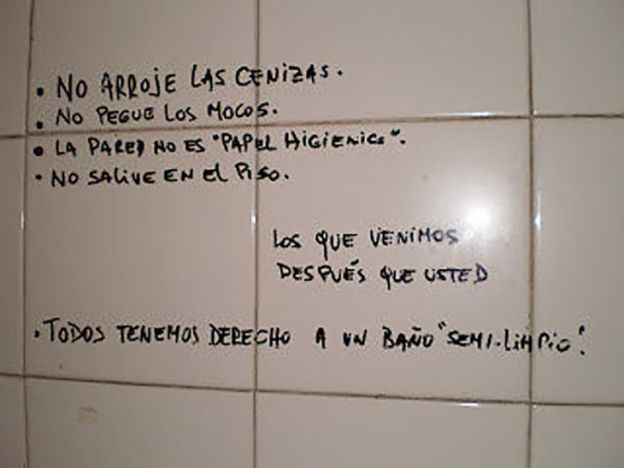 • NO ARROJE LAS CENIZAS.
• NO PEGUE LOS MOCOS.
• LA PARED NO ES "PAPEL HIGIENICO".
• NO SALIVE EN EL PISO.
LOS QUE VENIMOS
DESPUÉS QUE USTED
• TODOS TENEMOS DERECHO A UN BAÑO "SEMI-LIMPIO".